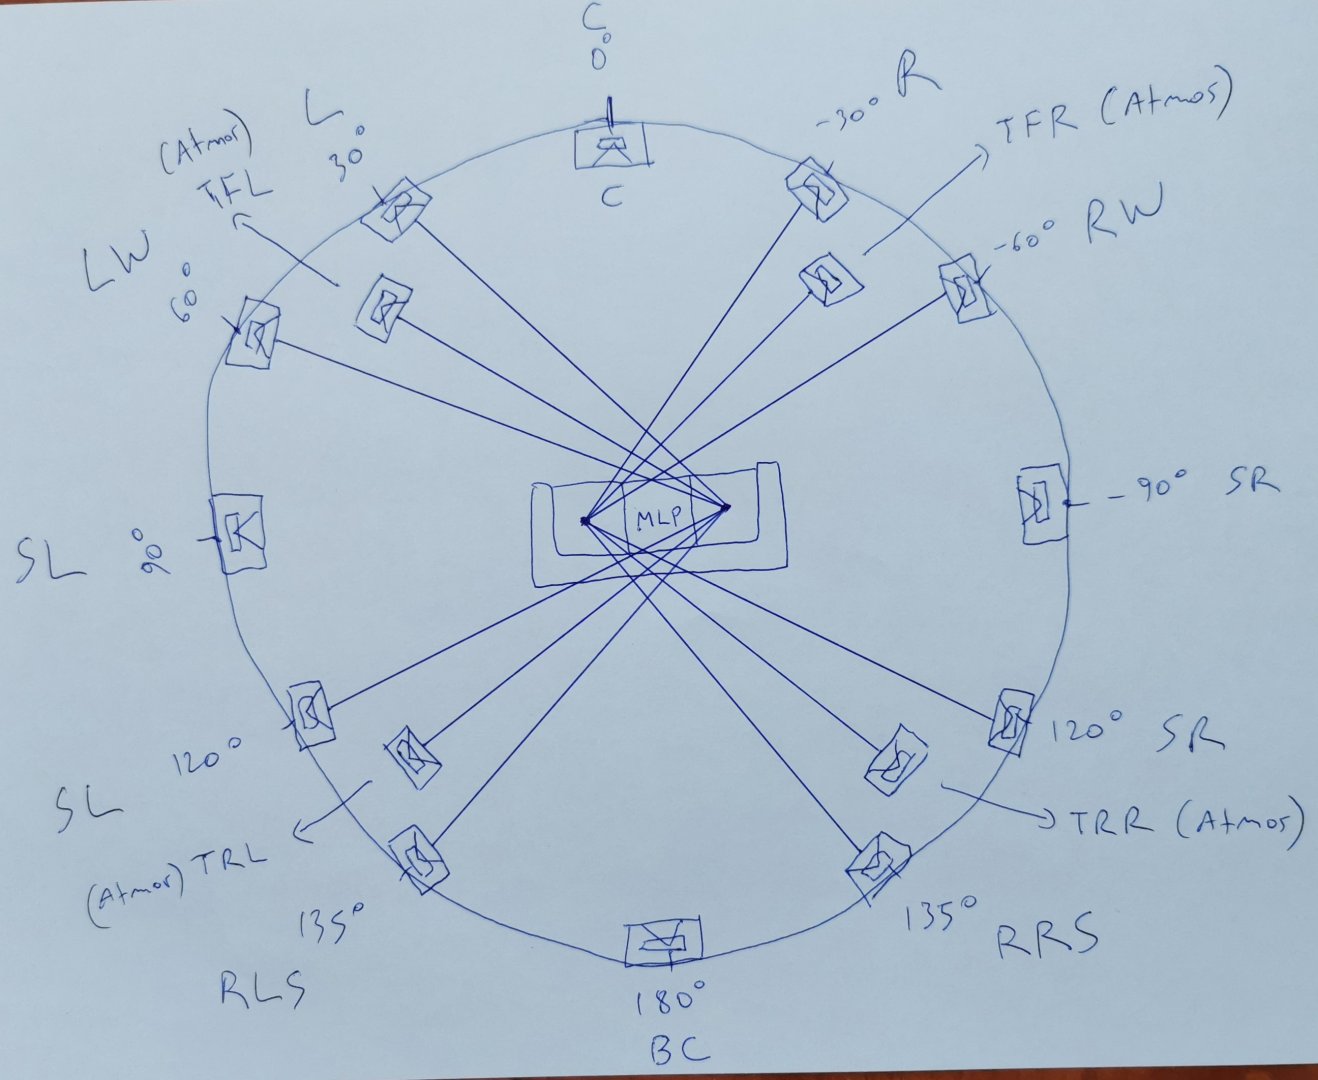 C
0°
C
L
30°
(Atmos)
TFL
LW
60°
-30° R
TFR (Atmos)
-60° RW
SL 90°
MLP
-90° SR
120°
SL
(Atmos) TRL
135°
RLS
120° SR
TRR (Atmos)
135°
RRS
180°
BC